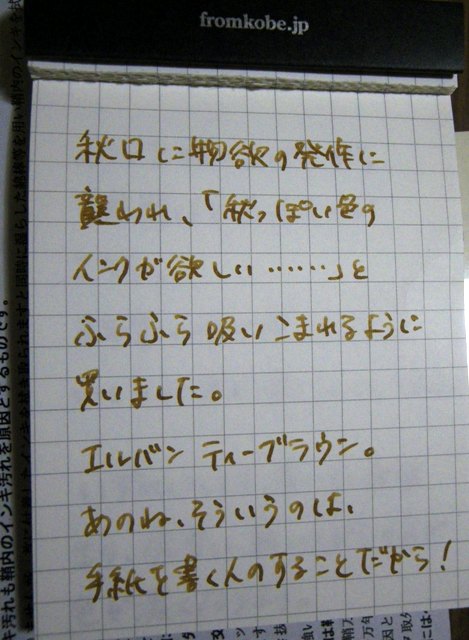 fromkobe.jp
秋口に物欲の発作に
襲われ、「秋っぽい色の
インクが欲しい……」と
ふらふら吸いこまれるように
買いました。
エルバン ティーブラウン。
あのね、そういうのは、
手紙を書く人のすることだから！
キ汚れも朝内のインキ汚れを原因とするものです。